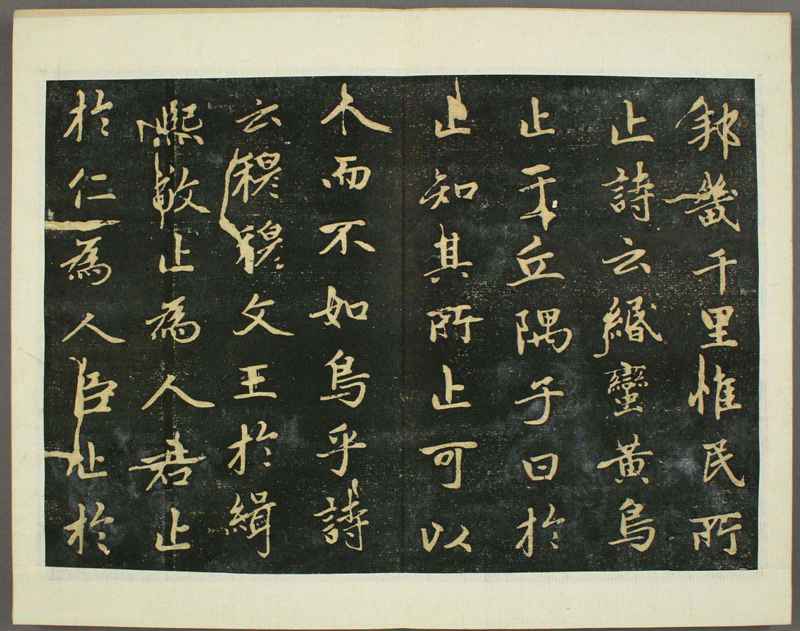 邦畿千里惟民所
止詩云緡蠻黃鳥
止于丘隅子曰於
止知其所止可以
人而不如鳥乎詩
云穆穆文王於緝
熙敬止為人君止
於仁為人臣止於